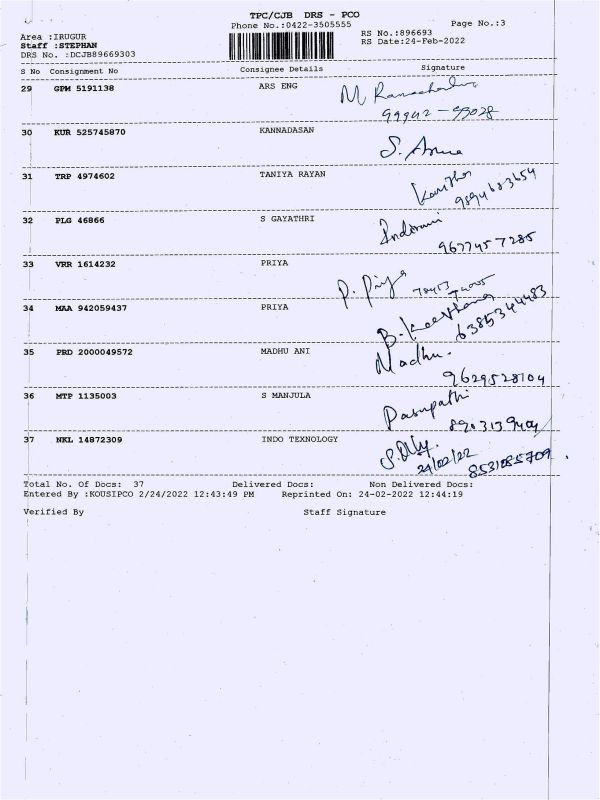 TPC/CJB DRS - PCO
Phone No.:0422-3505555 Page No.:3
Area :IRUGUR RS No.:896693
Staff :STEPHAN RS Date:24-Feb-2022
DRS No. :DCJB89669303
S No Consignment No Consignee Details Signature
29 GPM 5191138 ARS ENG M Ramachandran
99942 - 93028
30 KUR 525745870 KANNADASAN S.
31 TRP 4974602 TANIYA RAYAN Kavitha
9894683654
32 PLG 46866 S GAYATHRI Indirani
9677457285
33 VRR 1614232 PRIYA P. Priya
34 MAA 942059437 PRIYA B. Keerthana
6385344483
35 PRD 2000049572 MADHU ANI Madhu.
9629528104
36 MTP 1135003 S MANJULA Pasupathi
8903139404
37 NKL 14872309 INDO TEXNOLOGY
24/02/22 8531085709
Total No. Of Docs: 37 Delivered Docs: Non Delivered Docs:
Entered By :KOUSIPCO 2/24/2022 12:43:49 PM Reprinted On: 24-02-2022 12:44:19
Verified By Staff Signature